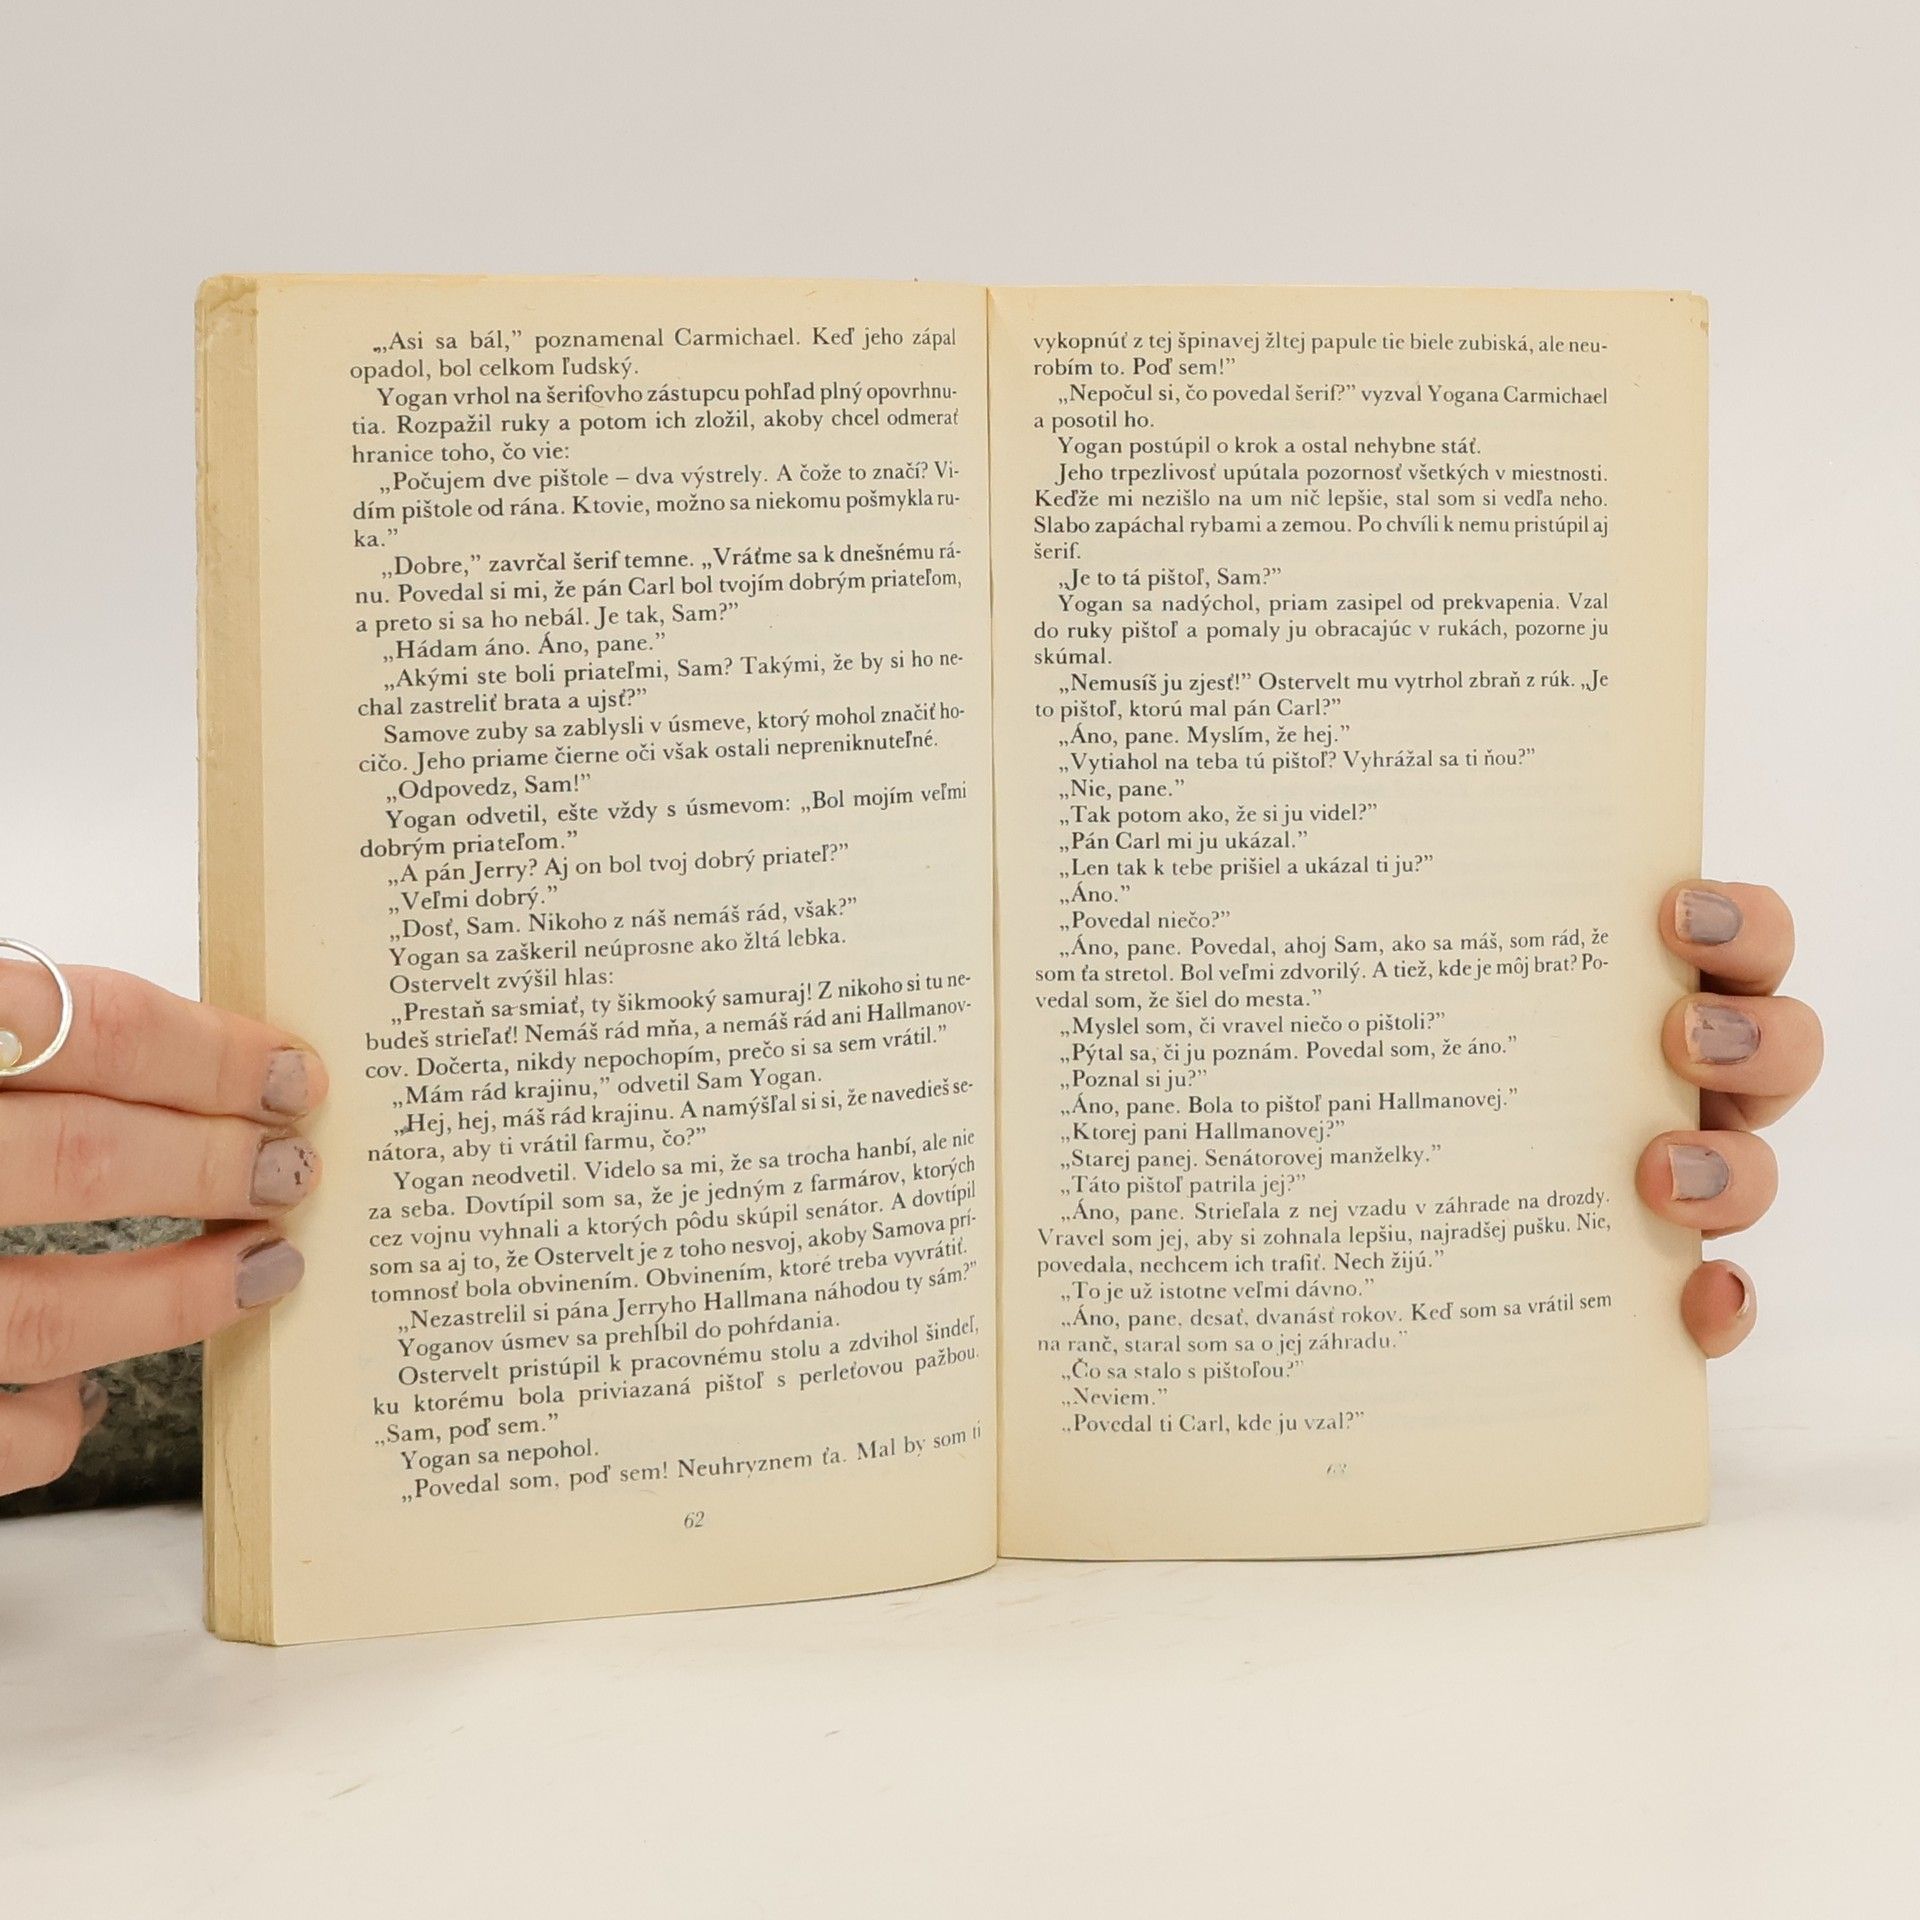 „Asi sa bál,” poznamenal Carmichael. Keď jeho zápal
opadol, bol celkom ľudský.
Yogan vrhol na šerifovho zástupcu pohľad plný opovrhnu-
tia. Rozpažil ruky a potom ich zložil, akoby chcel odmerať
hranice toho, čo vie:
„Počujem dve pištole – dva výstrely. A čože to značí? Vi-
dím pištole od rána. Ktovie, možno sa niekomu pošmykla ru-
ka.”
„Dobre,” zavrčal šerif temne. „Vráťme sa k dnešnému rá-
nu. Povedal si mi, že pán Carl bol tvojím dobrým priateľom,
a preto si sa ho nebál. Je tak, Sam?”
„Hádam áno. Áno, pane.”
„Akými ste boli priateľmi, Sam? Takými, že by si ho ne-
chal zastreliť brata a ujsť?”
Samove zuby sa zablysli v úsmeve, ktorý mohol značiť ho-
cičo. Jeho priame čierne oči však ostali nepreniknuteľné.
„Odpovedz, Sam!”
Yogan odvetil, ešte vždy s úsmevom: „Bol mojím veľmi
dobrým priateľom.”
„A pán Jerry? Aj on bol tvoj dobrý priateľ?”
„Veľmi dobrý.”
„Dosť, Sam. Nikoho z náš nemáš rád, však?”
Yogan sa zaškeril neúprosne ako žltá lebka.
Ostervelt zvýšil hlas:
„Prestaň sa smiať, ty šikmooký samuraj! Z nikoho si tu ne-
budeš strieľať! Nemáš rád mňa, a nemáš rád ani Hallmanov-
cov. Dočerta, nikdy nepochopím, prečo si sa sem vrátil.”
„Mám rád krajinu,” odvetil Sam Yogan.
„Hej, hej, máš rád krajinu. A namýšľal si si, že navedieš se-
nátora, aby ti vrátil farmu, čo?”
Yogan neodvetil. Videlo sa mi, že sa trocha hanbí, ale nie
za seba. Dovtípil som sa, že je jedným z farmárov, ktorých
cez vojnu vyhnali a ktorých pôdu skúpil senátor. A dovtípil
som sa aj to, že Ostervelt je z toho nesvoj, akoby Samova prí-
tomnosť bola obvinením. Obvinením, ktoré treba vyvrátiť.
„Nezastrelil si pána Jerryho Hallmana náhodou ty sám?”
Yoganov úsmev sa prehĺbil do pohŕdania.
Ostervelt pristúpil k pracovnému stolu a zdvihol šindeľ,
ku ktorému bola priviazaná pištoľ s perleťovou pažbou.
„Sam, poď sem.”
Yogan sa nepohol.
„Povedal som, poď sem! Neuhryznem ťa. Mal by som ti
62
vykopnúť z tej špinavej žltej papule tie biele zubiská, ale neu-
robím to. Poď sem!”
„Nepočul si, čo povedal šerif?” vyzval Yogana Carmichael
a posotil ho.
Yogan postúpil o krok a ostal nehybne stáť.
Jeho trpezlivosť upútala pozornosť všetkých v miestnosti.
Keďže mi nezišlo na um nič lepšie, stal som si vedľa neho.
Slabo zapáchal rybami a zemou. Po chvíli k nemu pristúpil aj
šerif.
„Je to tá pištoľ, Sam?”
Yogan sa nadýchol, priam zasipel od prekvapenia. Vzal
do ruky pištoľ a pomaly ju obracajúc v rukách, pozorne ju
skúmal.
„Nemusíš ju zjesť!” Ostervelt mu vytrhol zbraň z rúk. „Je
to pištoľ, ktorú mal pán Carl?”
„Áno, pane. Myslím, že hej.”
„Vytiahol na teba tú pištoľ? Vyhrážal sa ti ňou?”
„Nie, pane.”
„Tak potom ako, že si ju videl?”
„Pán Carl mi ju ukázal.”
„Len tak k tebe prišiel a ukázal ti ju?”
„Áno.”
„Povedal niečo?”
„Áno, pane. Povedal, ahoj Sam, ako sa máš, som rád, že
som ťa stretol. Bol veľmi zdvorilý. A tiež, kde je môj brat? Po-
vedal som, že šiel do mesta.”
„Myslel som, či vravel niečo o pištoli?”
„Pýtal sa, či ju poznám. Povedal som, že áno.”
„Poznal si ju?”
„Áno, pane. Bola to pištoľ pani Hallmanovej.”
„Ktorej pani Hallmanovej?”
„Starej panej. Senátorovej manželky.”
„Táto pištoľ patrila jej?”
„Áno, pane. Strieľala z nej vzadu v záhrade na drozdy.
Vravel som jej, aby si zohnala lepšiu, najradšej pušku. Nie,
povedala, nechcem ich trafiť. Nech žijú.”
„To je už istotne veľmi dávno.”
„Áno, pane, desať, dvanásť rokov. Keď som sa vrátil sem
na ranč, staral som sa o jej záhradu.”
„Čo sa stalo s pištoľou?”
„Neviem.”
„Povedal ti Carl, kde ju vzal?”
63